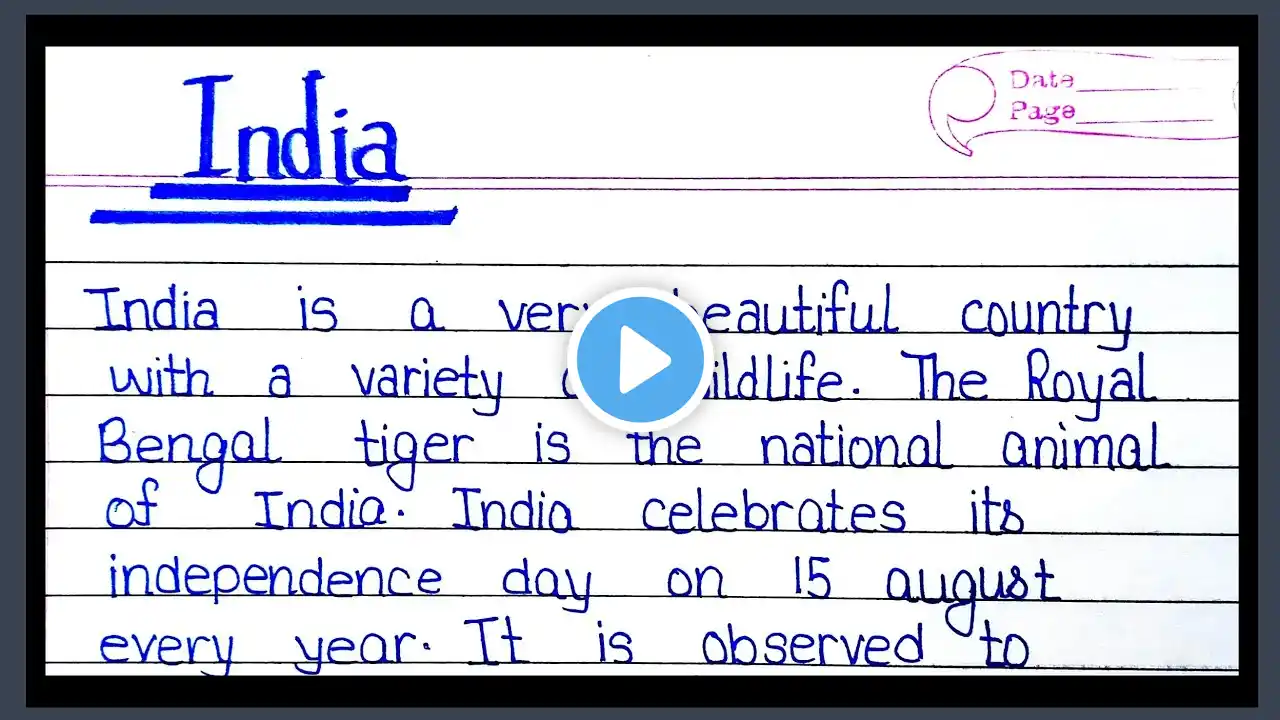 India
Date
Page
India is a very beautiful country
with a variety wildlife. The Royal
Bengal tiger is the national animal
of India. India celebrates its
independence day on 15 august
every year. It is observed to